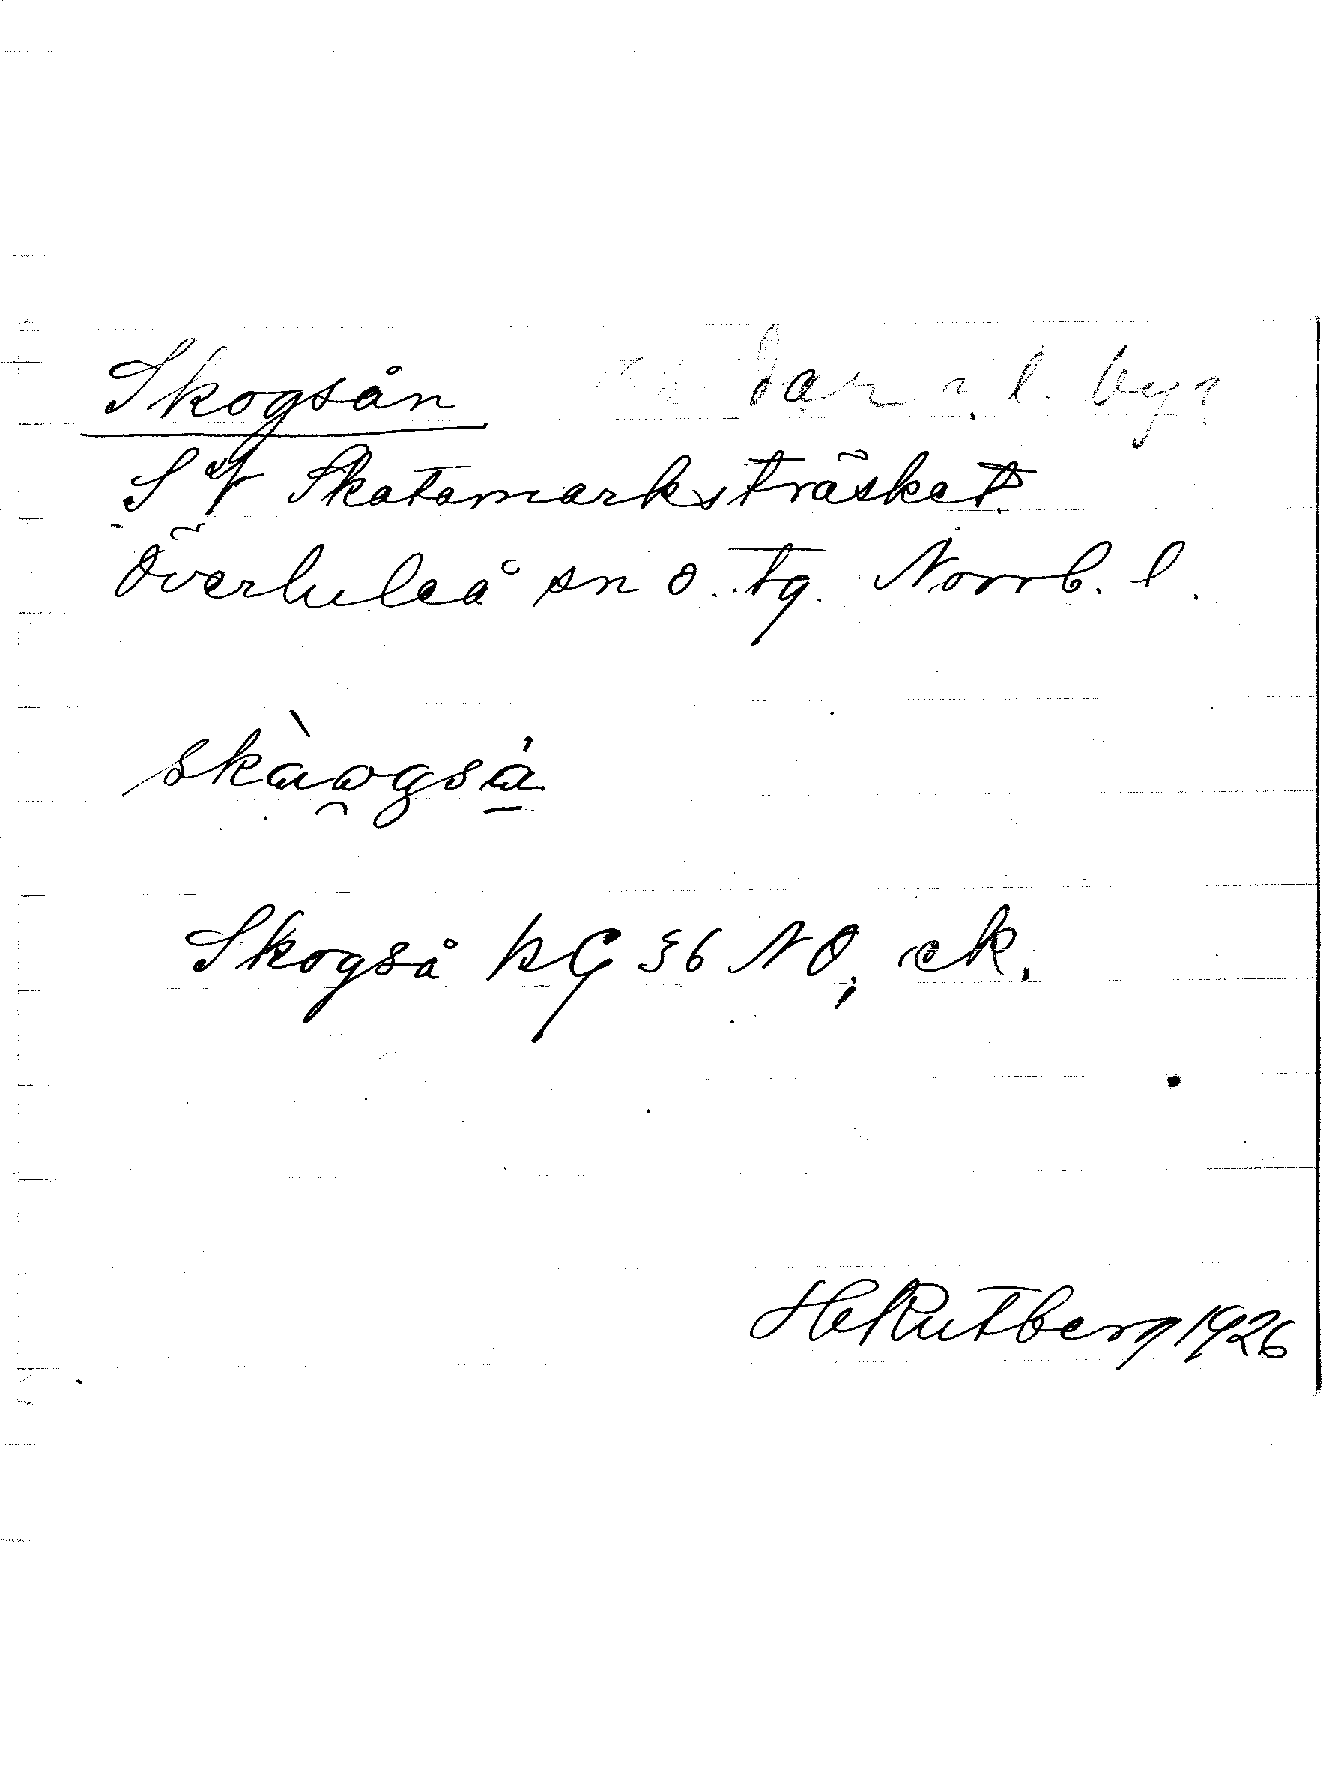 Skogsån
S of Skatamarksträsket
Överluleå sn o. tg. Norrb. l.
skàogså
Skogså KG 36 NO, ek.
H Rutberg 1926